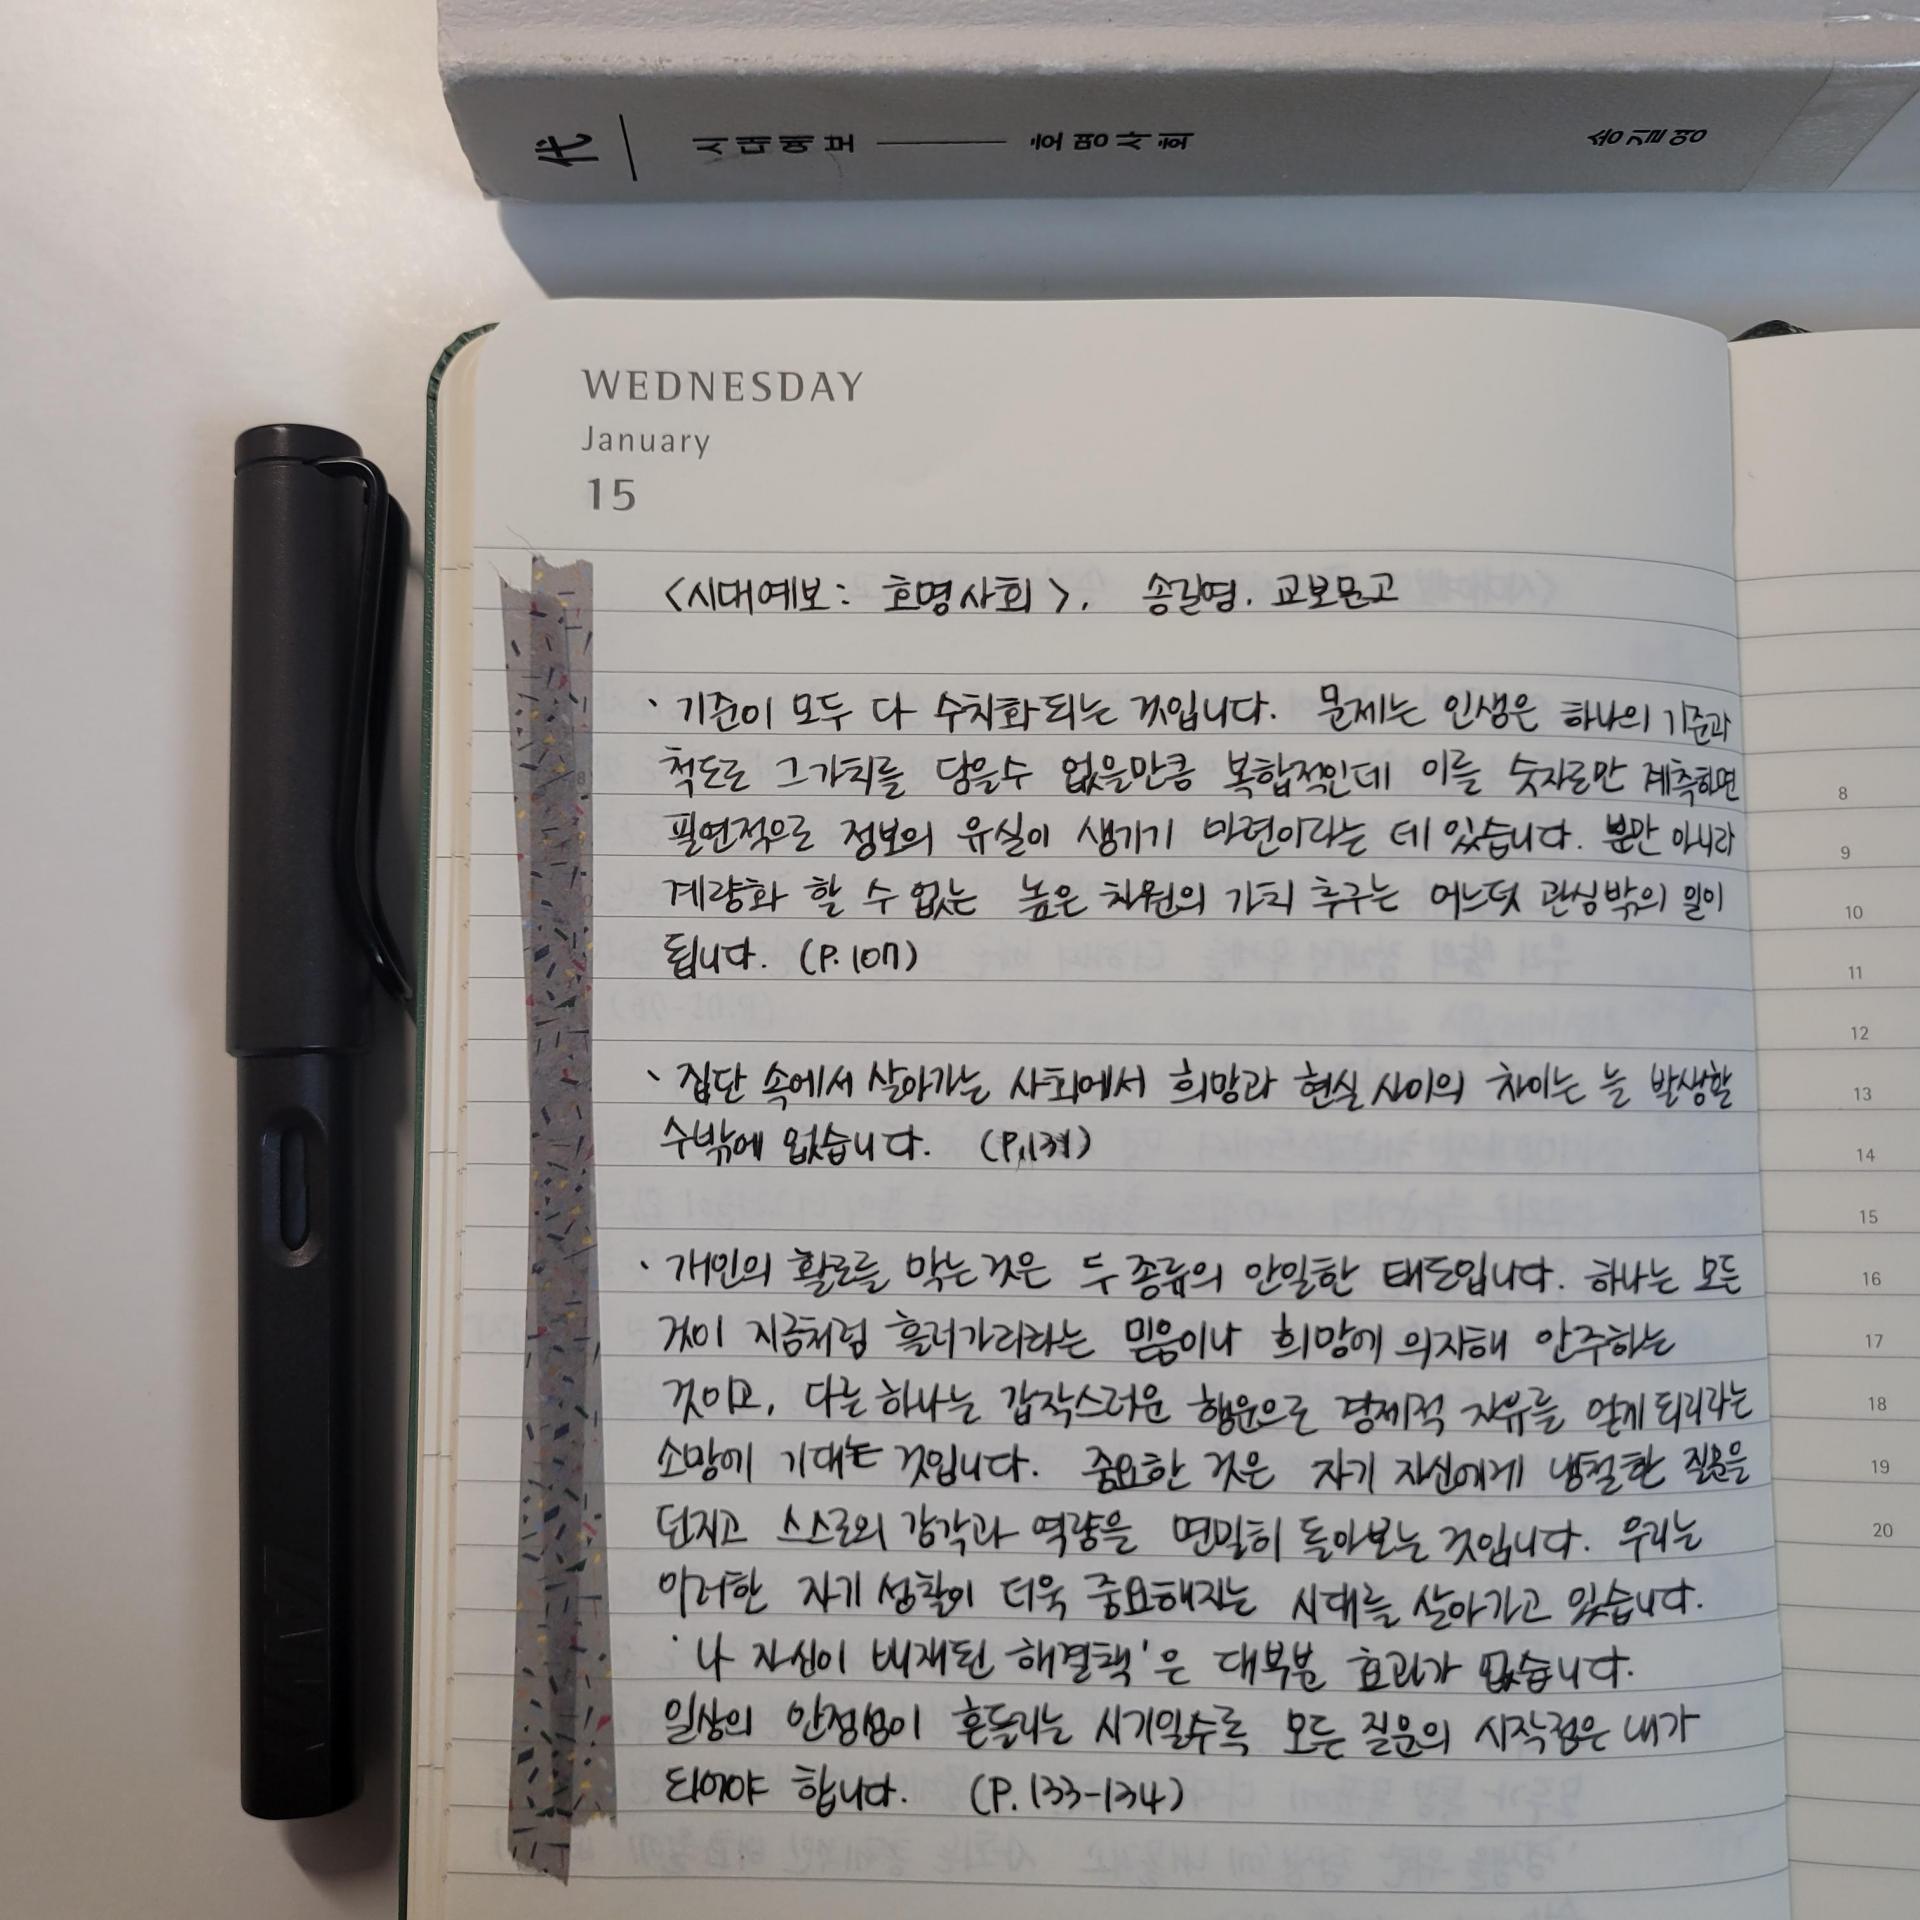 代 시대예보 호명사회 송길영
WEDNESDAY
January
15
<시대예보: 호명사회>, 송길영. 교보문고
· 기준이 모두 다 수치화되는 것입니다. 문제는 인생은 하나의 기준과
척도로 그가치를 담을수 없을만큼 복합적인데 이를 숫자로만 계측하면
필연적으로 정보의 유실이 생기기 마련이라는 데 있습니다. 뿐만 아니라
계량화 할 수 없는 높은 차원의 가치 추구는 어느덧 관심밖의 일이
됩니다. (P.107)
· 집단 속에서 살아가는 사회에서 희망과 현실 사이의 차이는 늘 발생할
수밖에 없습니다. (P.131)
· 개인의 활로를 막는것은 두 종류의 안일한 태도입니다. 하나는 모든
것이 지금처럼 흘러가리라는 믿음이나 희망에 의지해 안주하는
것이고, 다른 하나는 갑작스러운 행운으로 경제적 자유를 얻게 되리라는
소망에 기대는 것입니다. 중요한 것은 자기 자신에게 냉철한 질문을
던지고 스스로의 감각과 역량을 면밀히 돌아보는 것입니다. 우리는
이러한 자기 성찰이 더욱 중요해지는 시대를 살아가고 있습니다.
'나 자신이 배재된 해결책'은 대부분 효과가 없습니다.
일상의 안정성이 흔들리는 시기일수록 모든 질문의 시작점은 내가
되어야 합니다. (P.133-134)
8
9
10
11
12
13
14
15
16
17
18
19
20